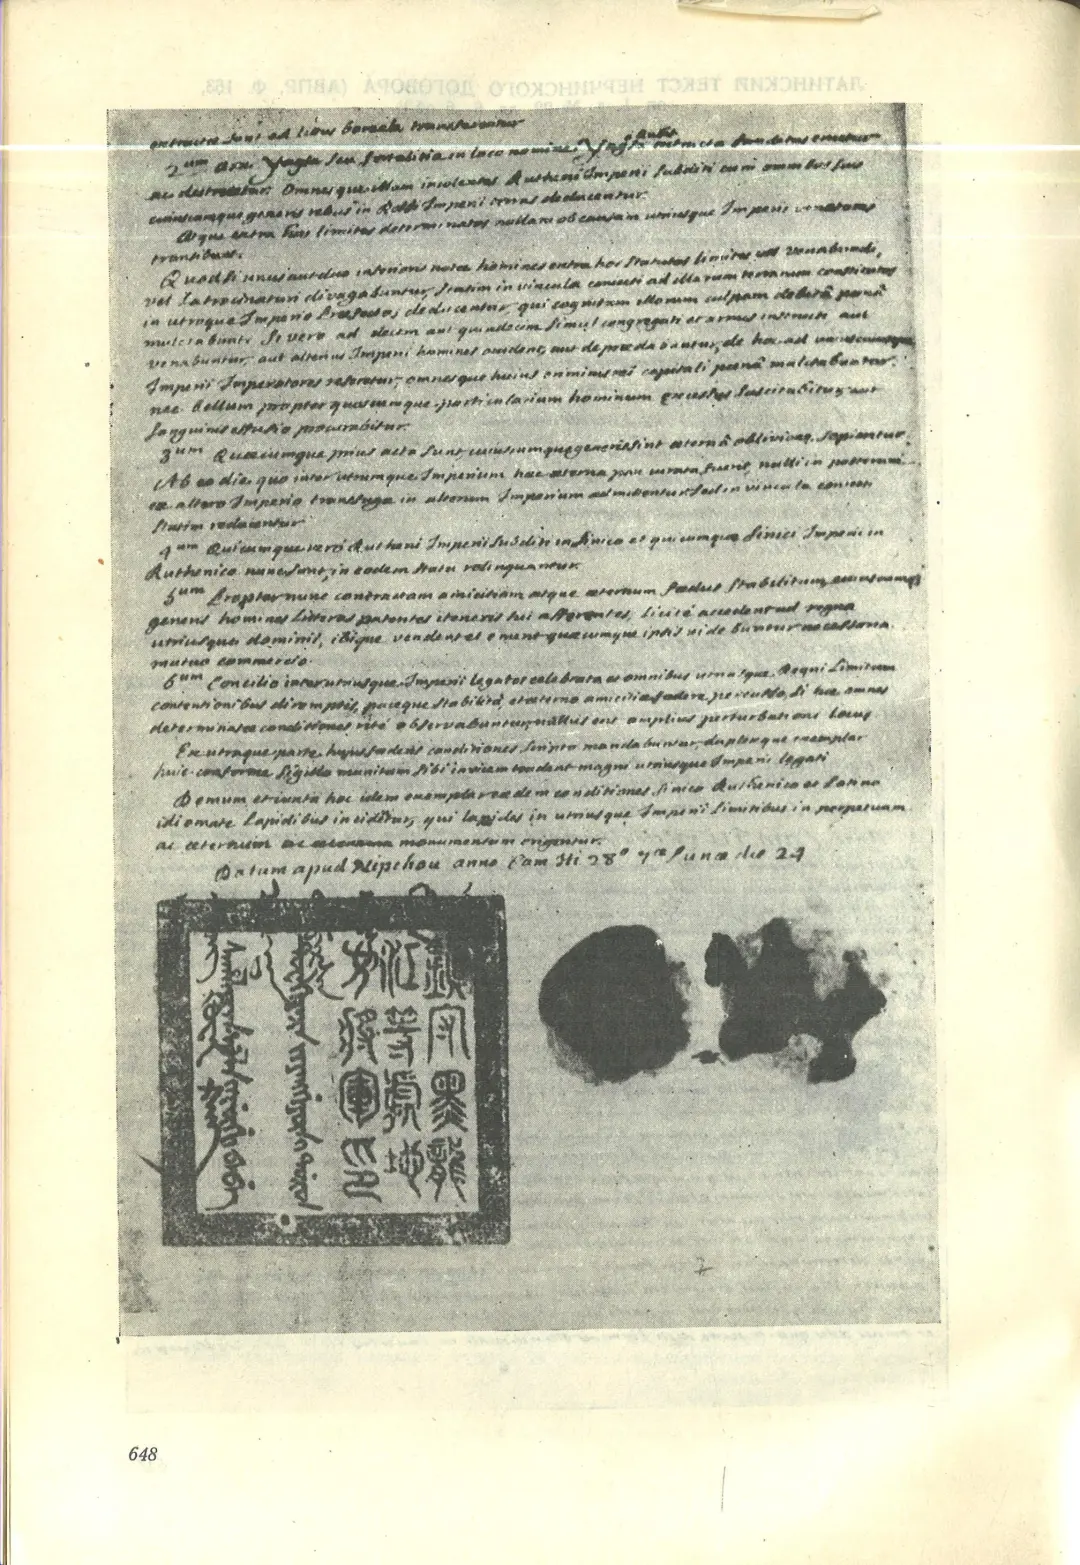 extructa sunt ad litus boreale transferentur
2um Arx Yagsa seu fortalitia in loco nomine Yagsa extructa funditus eruetur
ac destruetur. Omnesque illam incolentes Rutheni Imperii subditi cum omnibus suis
cuiuscumque generis rebus in Imperii terras deducentur.
Atque extra hos limites determinatos nullam ob causam utriusque Imperii venatores
transibunt.
Quod si unus aut duo inferioris notae homines extra hos statutos limites vel venabundi,
vel latrocinaturi divagabuntur, statim in vincula coniecti ad illarum terrarum constitutos
in utroque Imperio Praefectos deducentur, qui cognitam illorum culpam debitâ poenâ
mulctabunt. Si vero ad decem aut quindecim simul congregati et armis instructi aut
venabuntur, aut alterius Imperii homines occident, aut depraedabuntur, de hoc ad uniuscuiusque
Imperii Imperatores referetur, omnesque huius criminis rei capitali poenâ mulctabuntur.
nec bellum propter quoscumque particularium hominum excessus suscitabitur, aut
sanguinis effusio procurabitur.
3um Quaecumque prius acta sunt, cuiuscumque generis sint aeternâ oblivione sopiantur.
Ab eo die quo inter utrumque Imperium haec aeterna pax iurata fuerit, nulli in posterum
ex altero Imperio transfugae in alterum Imperium admittentur sed in vincula coniecti
statim reducentur
4um Quicumque vero Rutheni Imperii subditi in Sinico et quicumque Sinici Imperii in
Ruthenico nunc sunt, in eodem statu relinquantur.
5um Propter nunc contractam amicitiam atque aeternum foedus stabilitum, cuiuscumque
generis homines litteras patentes itineris sui afferentes, licité accedent ad regna
utriusque dominii, ibique vendent et ement quaecumque ipsis videbuntur necessaria
mutuo commercio.
6um Concilio inter utriusque Imperii legatos celebrato et omnibus utriusque Regni limitum
contentionibus diremptis, paceque stabilitâ, et aeterno amicitiae foedere percusso, si hae omnes
determinatae conditiones rité observabuntur, nullus erit amplius perturbationi locus
Ex utraque parte huius foederis conditiones scripto mandabuntur, duplexque exemplar
huic conforme sigillo munitum sibi invicem tradent magni utriusque Imperii legati
Demum et iuxta hoc idem exemplar eaedem conditiones Sinico Ruthenico et Latino
idiomate lapidibus incidentur, qui lapides in utriusque Imperii limitibus in perpetuum
ac aeternum monumentum erigentur.
Datum apud Nipchou anno Cam Hi 28° 7ae lunae die 24
鎮守黑龍
江等處地
方將軍印
7
648